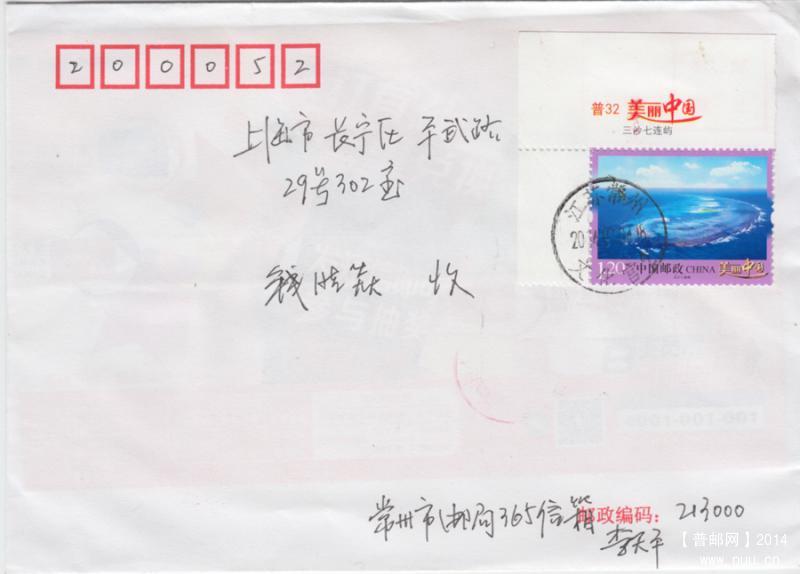 200052
普32 美丽中国
三沙七连屿
上海市 长宁区 平武路
29号302室
1.20 中国邮政 CHINA 美丽中国
江苏 常州
收
常州市邮局365信箱 邮政编码: 213000
李天平
【普邮网】2014
www.puu.cn